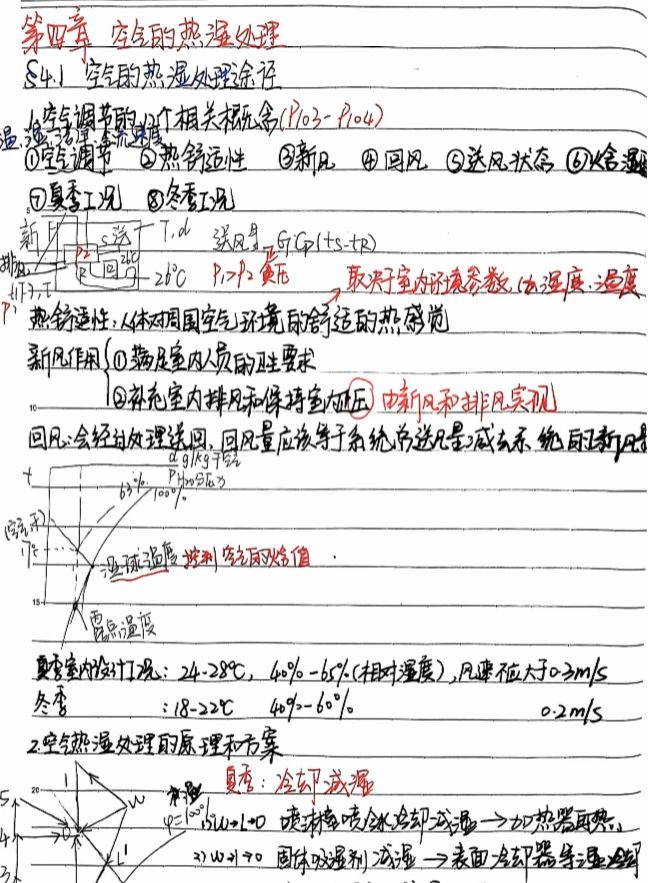 第四章 空气的热湿处理
§4.1 空气的热湿处理途径
1.空气调节的 个相关概念(P103-P104)
①空气调节 ②热舒适性 ③新风 ④回风 ⑤送风状态 ⑥焓湿
⑦夏季工况 ⑧冬季工况
新 送 T,d 送风 GCp(ts-tR)
排 P2 回 26℃
R 26℃ P1>P2 负压 取决于室内环境参数,(如湿度、温度
热舒适性:人体对周围空气环境的舒适的热感觉
新风作用 ①满足室内人员的卫生要求
②补充室内排风和保持室内正压 由新风和排风实现
10
回风:会经过处理送回,回风量应该等于系统总送风量减去系统的新风量
t d g/kg干空气
63% 100%
湿球温度 控制空气的焓值
15
露点温度
夏季室内设计工况:24-28℃, 40%-65%(相对湿度),风速不应大于0.3m/s
冬季 :18-22℃ 40%-60% 0.2m/s
2.空气热湿处理的原理和方案
夏季:冷却减湿
20
5 1 W φ=100% 1)W→L→O 喷淋室喷冷水冷却减湿→加热器再热
4 O 2)W→1→O 固体吸湿剂减湿→表面冷却器等湿冷却
3 L'